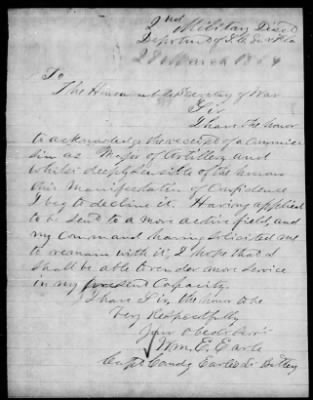 2nd Military Dist
Department of S.C. Ga & Fla
28 March 1864
To
The Honorable Secretary of War
Sir
I have the honor
to acknowledge the receipt of a Commis-
sion as Major of Artillery and
whilst deeply sensible of the honor
this Manifestation of Confidence
I beg to decline it. Having applied
to be sent to a more active field, and
my Command having solicited me
to remain with it, I hope that I
shall be able to render more service
in my present Capacity.
I have Sir, the honor to be
Very Respectfully
Your Obedt Servt
Wm. E. Earle
Capt Comdg Earle's Lt Battery